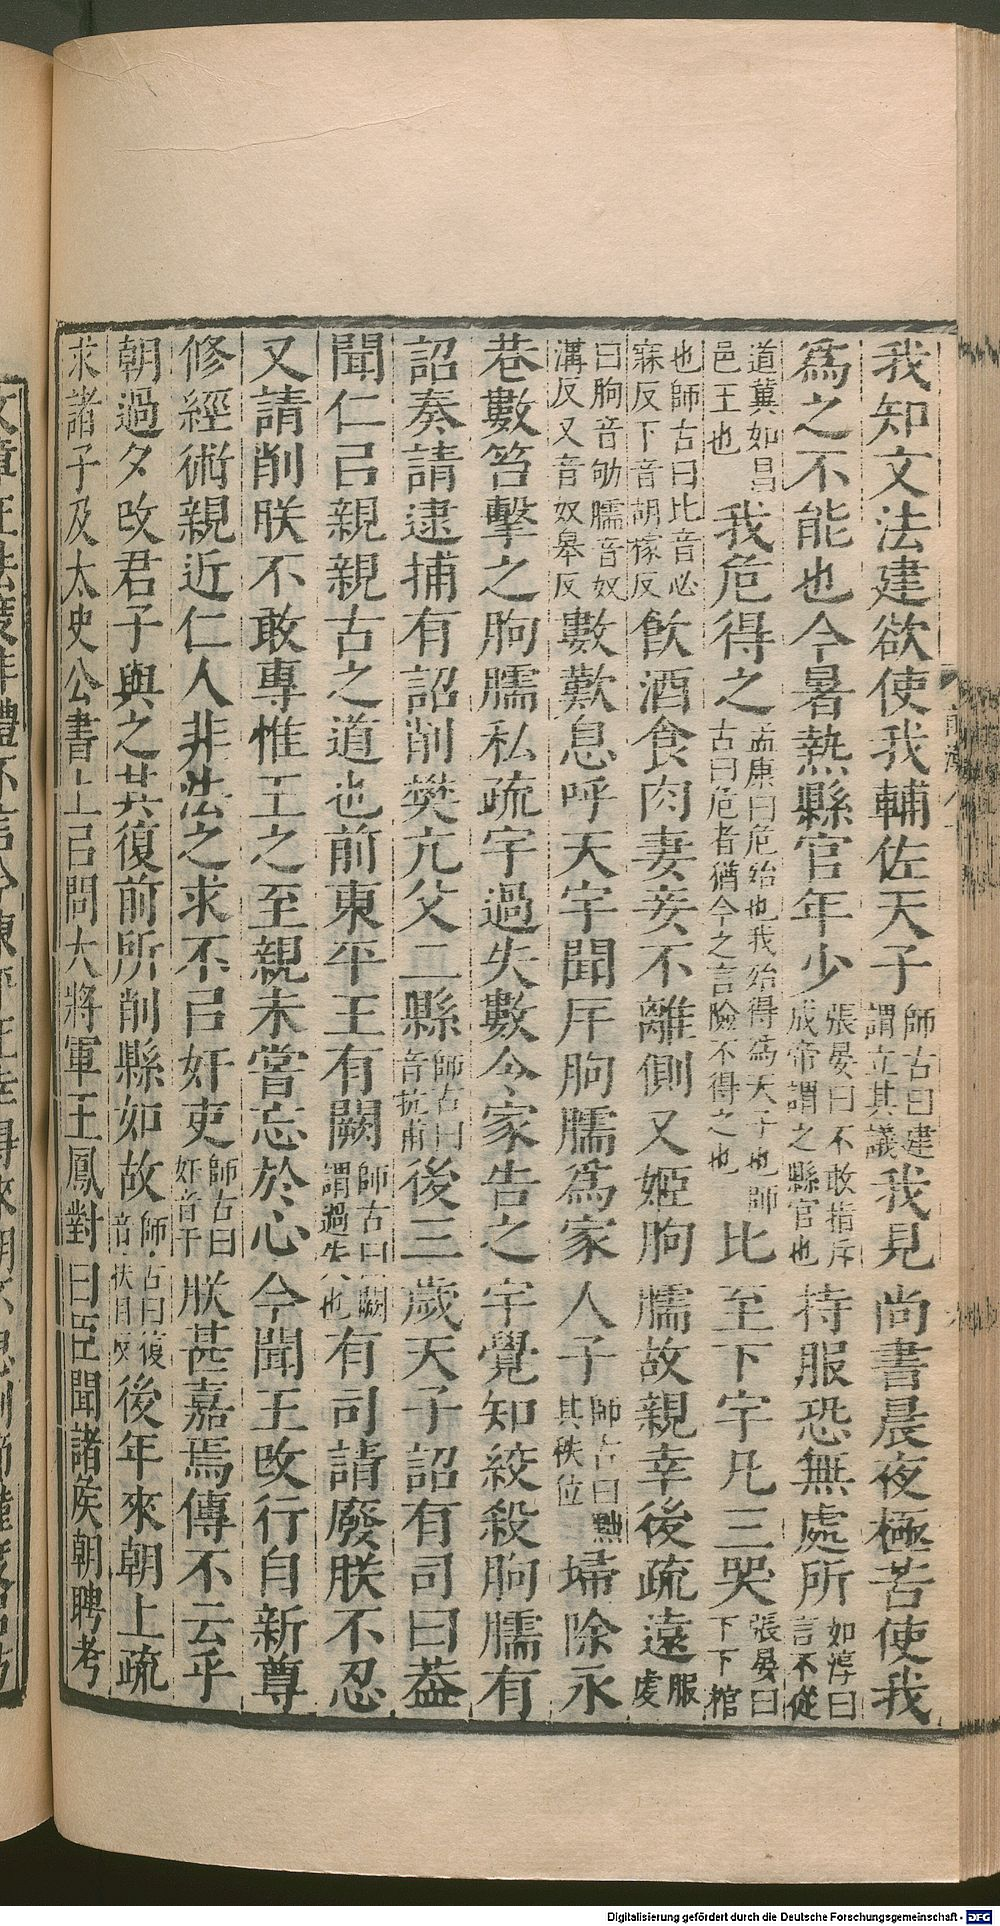 我知文法建欲使我輔佐天子師古曰建謂立其議我見尚書晨夜極苦使我
爲之不能也今暑熱縣官年少張晏曰不敢指斥成帝謂之縣官也持服恐無處所如淳曰言不從
道冀如昌邑王也我危得之孟康曰危殆也我殆得爲天子也師古曰危者猶今之言險不得之也比至下宇凡三哭張晏曰下下棺
也師古曰比音必寐反下音胡稼反飲酒食肉妻妾不離側又姬朐臑故親幸後疏遠服虔
曰朐音劬臑音奴溝反又音奴皋反數歎息呼天宇聞斥朐臑爲家人子師古曰黜其秩位埽除永
巷數笞擊之朐臑私疏宇過失數令家告之宇覺知絞殺朐臑有
詔奏請逮捕有詔削樊亢父二縣師古曰音抗甫後三歲天子詔有司曰葢
聞仁㠯親親古之道也前東平王有闕師古曰闕謂過失也有司請廢朕不忍
又請削朕不敢專惟王之至親未嘗忘於心今聞王改行自新尊
修經術親近仁人非法之求不㠯奸吏師古曰奸音干朕甚嘉焉傳不云乎
朝過夕改君子與之其復前所削縣如故師古曰復音扶目反後年來朝上疏
求諸子及太史公書上㠯問大將軍王鳳對曰臣聞諸侯朝聘考
Digitalisierung gefördert durch die Deutsche Forschungsgemeinschaft - DFG